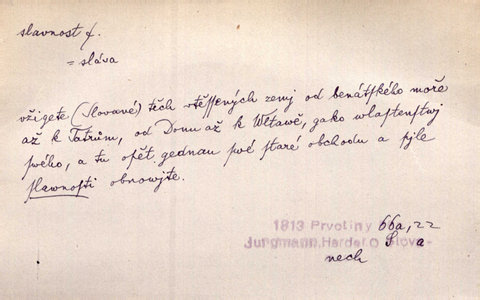 slavnost f.
= sláva
vžigete (Slované) těch utěssených zemj od benátského moře
až k Tatrům, od Donu až k Wltawě, gako wlastenstwj
swého, a tu opět gednau své staré obchodu a pjle
slawnosti obnowjte.
1813 Prvotiny 66a, 22
Jungmann, Herder o Slova-
nech